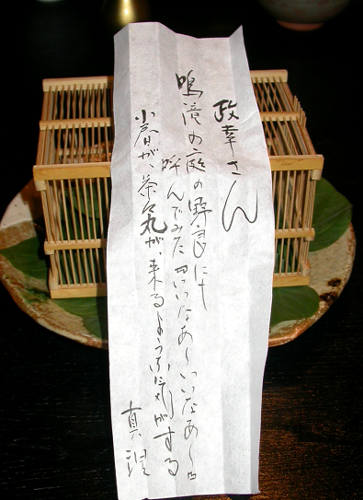 政幸さん
鳴滝の庭の野良に
呼んでみた「いいなあ〜いいなあ〜」
小春が、茶々丸が、来るような気がする
真理